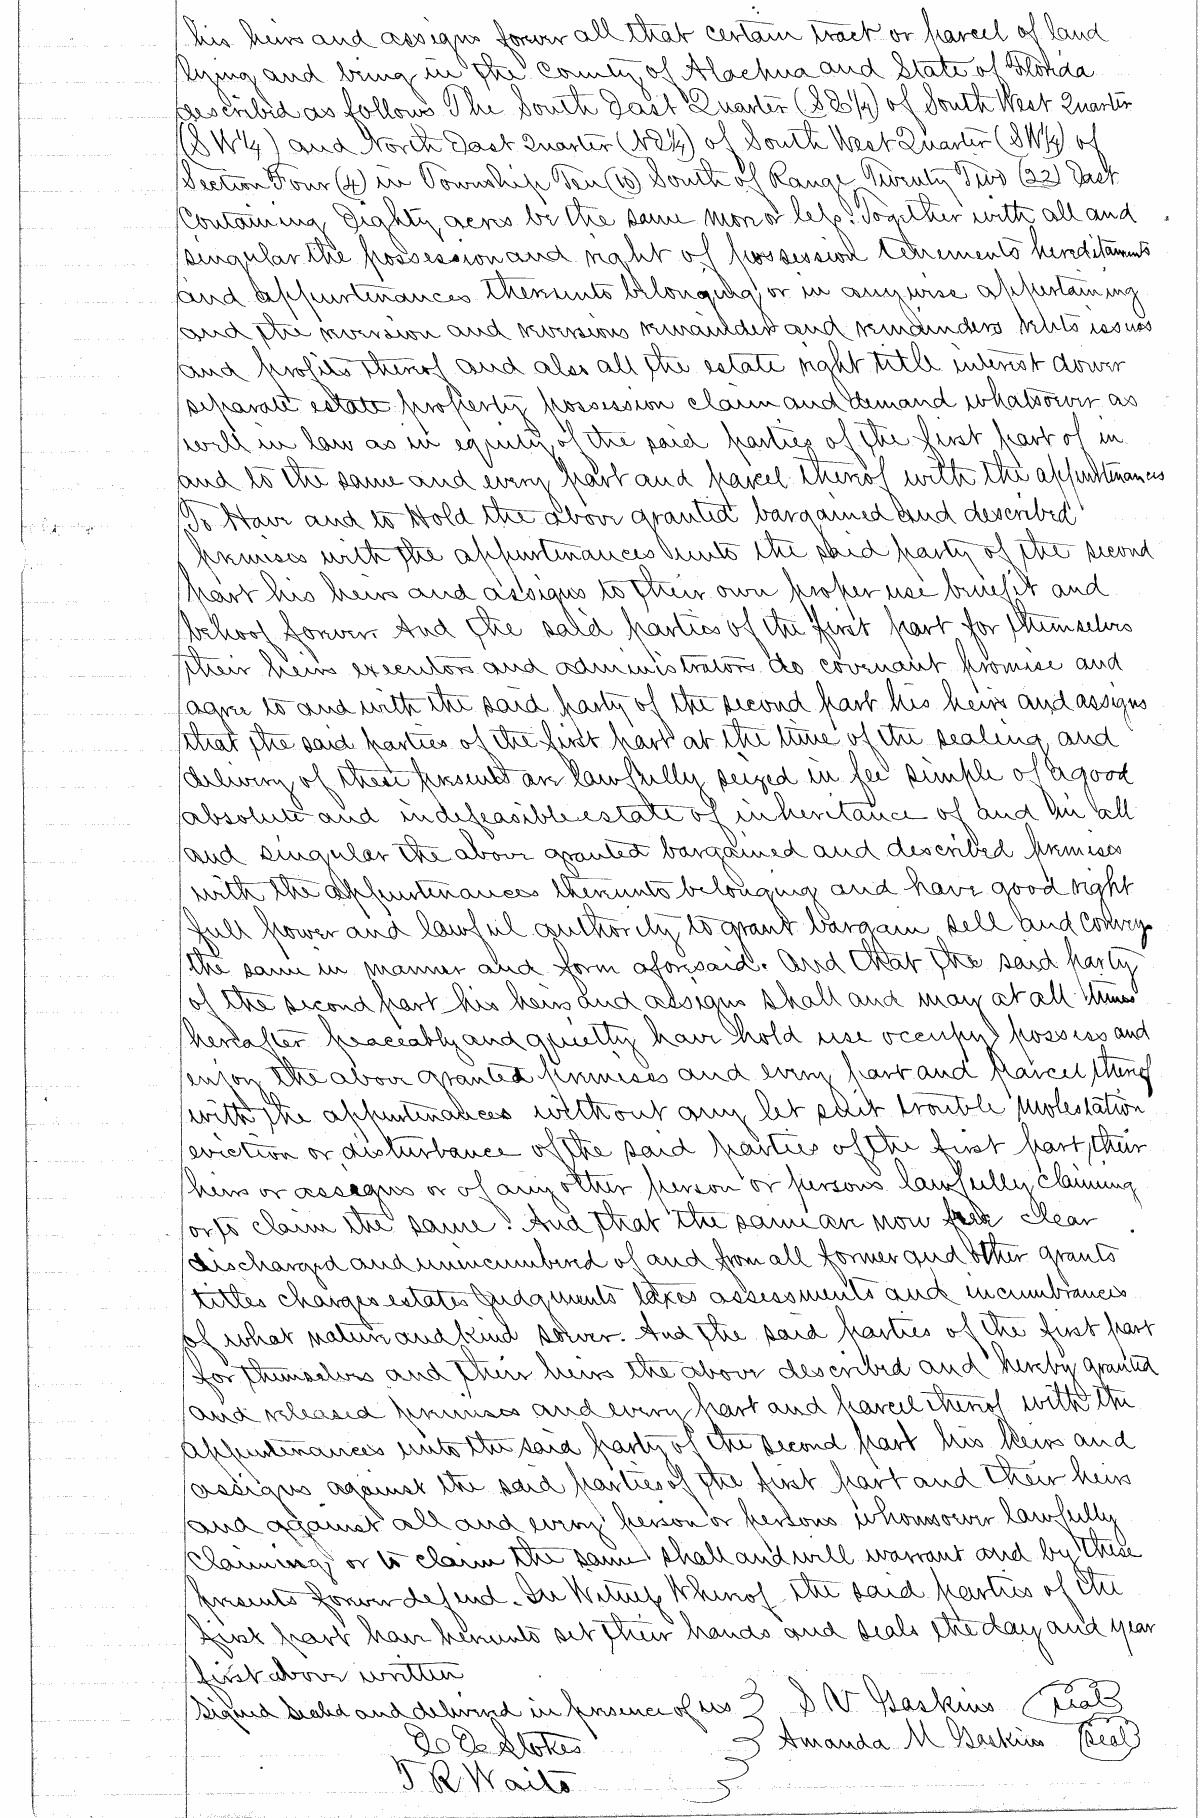 his heirs and assigns forever all that certain tract or parcel of land
lying and being in the County of Alachua and State of Florida
described as follows The South East Quarter (SE¼) of South West Quarter
(SW¼) and North East Quarter (NE¼) of South West Quarter (SW¼) of
Section Four (4) in Township Ten (10) South of Range Twenty Two (22) East
Containing Eighty acres be the same more or less. Together with all and
singular the possession and right of possession tenements hereditaments
and appurtenances thereunto belonging or in anywise appertaining
and the reversion and reversions remainder and remainders rents issues
and profits thereof and also all the estate right title interest dower
separate estate property possession claim and demand whatsoever as
well in law as in equity of the said parties of the first part of in
and to the same and every part and parcel thereof with the appurtenances
To Have and to Hold the above granted bargained and described
premises with the appurtenances unto the said party of the second
part his heirs and assigns to their own proper use benefit and
behoof forever. And the said parties of the first part for themselves
their heirs executors and administrators do covenant promise and
agree to and with the said party of the second part his heirs and assigns
that the said parties of the first part at the time of the sealing and
delivery of these presents are lawfully seized in fee simple of a good
absolute and indefeasible estate of inheritance of and in all
and singular the above granted bargained and described premises
with the appurtenances thereunto belonging and have good right
full power and lawful authority to grant bargain sell and convey
the same in manner and form aforesaid. And that the said party
of the second part his heirs and assigns shall and may at all times
hereafter peaceably and quietly have hold use occupy possess and
enjoy the above granted premises and every part and parcel thereof
with the appurtenances without any let suit trouble molestation
eviction or disturbance of the said parties of the first part, their
heirs or assigns or of any other person or persons lawfully claiming
or to claim the same. And that the same are now free clear
discharged and unincumbered of and from all former and other grants
titles charges estates judgments taxes assessments and incumbrances
of what nature and kind soever. And the said parties of the first part
for themselves and their heirs the above described and hereby granted
and released premises and every part and parcel thereof with the
appurtenances unto the said party of the second part his heirs and
assigns against the said parties of the first part and their heirs
and against all and every person or persons whomsoever lawfully
claiming or to claim the same shall and will warrant and by these
presents forever defend. In Witness Whereof the said parties of the
first part have hereunto set their hands and seals the day and year
first above written
Signed Sealed and delivered in presence of us } S V Gaskins (seal)
E E Stokes } Amanda M Gaskins (seal)
T R Waits }